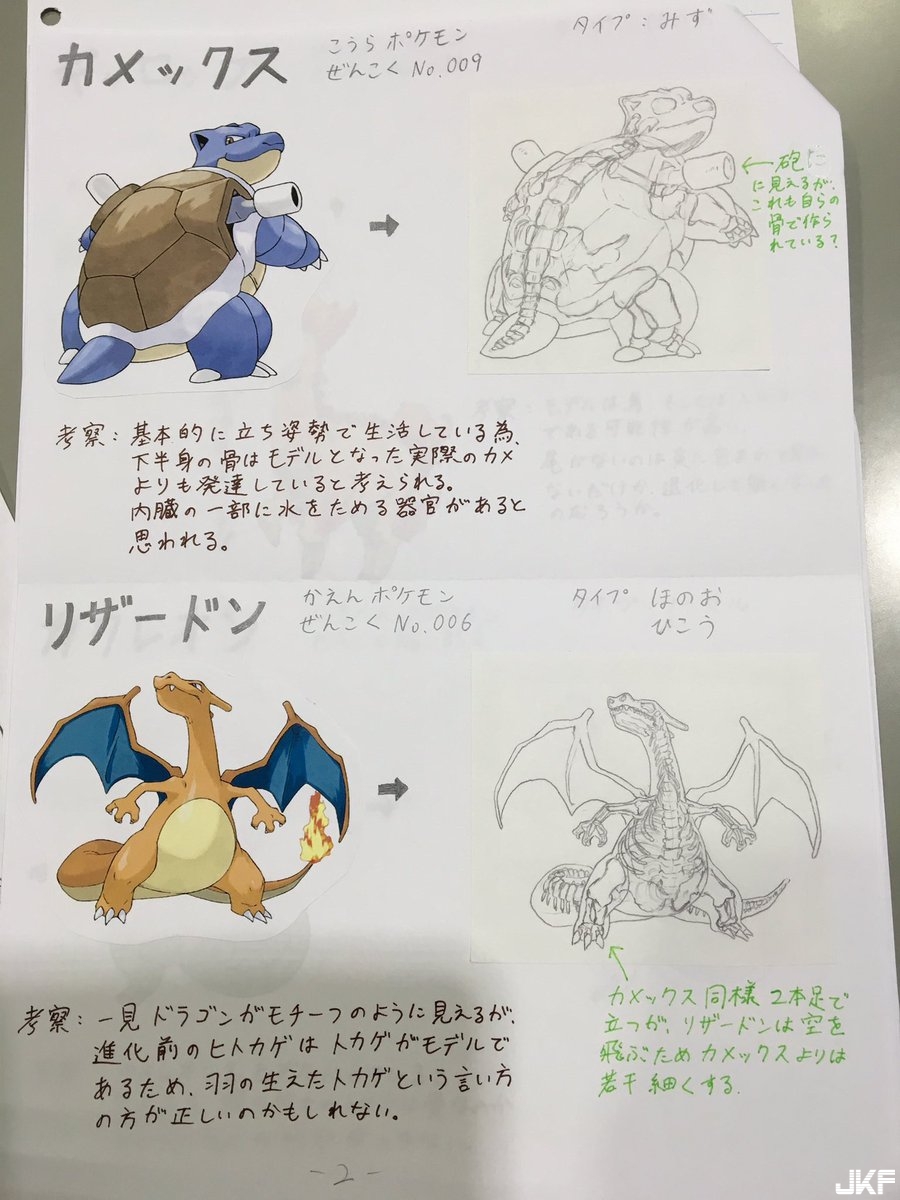 カメックス
こうらポケモン
ぜんこく No.009
タイプ：みず
←砲
に見えるが、
これも自らの
骨で作ら
れている？
考察：基本的に立ち姿勢で生活している為、
下半身の骨はモデルとなった実際のカメ
よりも発達していると考えられる。
内臓の一部に水をためる器官があると
思われる。
リザードン
かえんポケモン
ぜんこく No.006
タイプ ほのお
ひこう
カメックス同様2本足で
立つが、リザードンは空を
飛ぶためカメックスよりは
若干細くする.
考察：一見ドラゴンがモチーフのように見えるが、
進化前のヒトカゲはトカゲがモデルで
あるため、羽の生えたトカゲという言い方
の方が正しいのかもしれない。
-2-
JKF